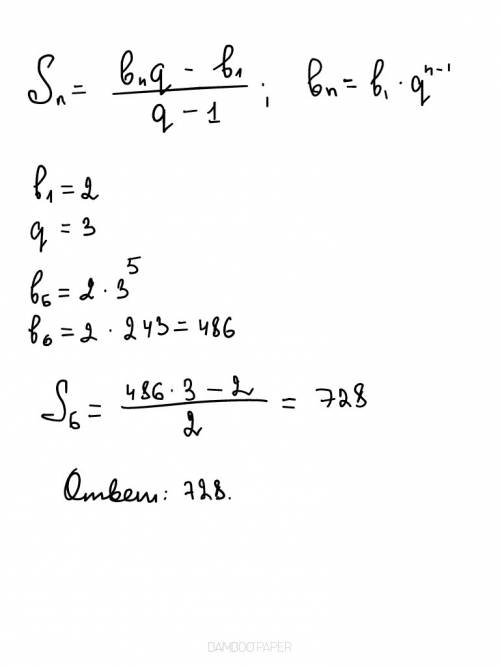 Sₙ = (bₙq − b₁)/(q − 1); bₙ = b₁ · qⁿ⁻¹
b₁ = 2
q = 3
b₆ = 2 · 3⁵
b₆ = 2 · 243 = 486
S₆ = (486 · 3 − 2)/2 = 728
Ответ: 728.
BAMBOO PAPER